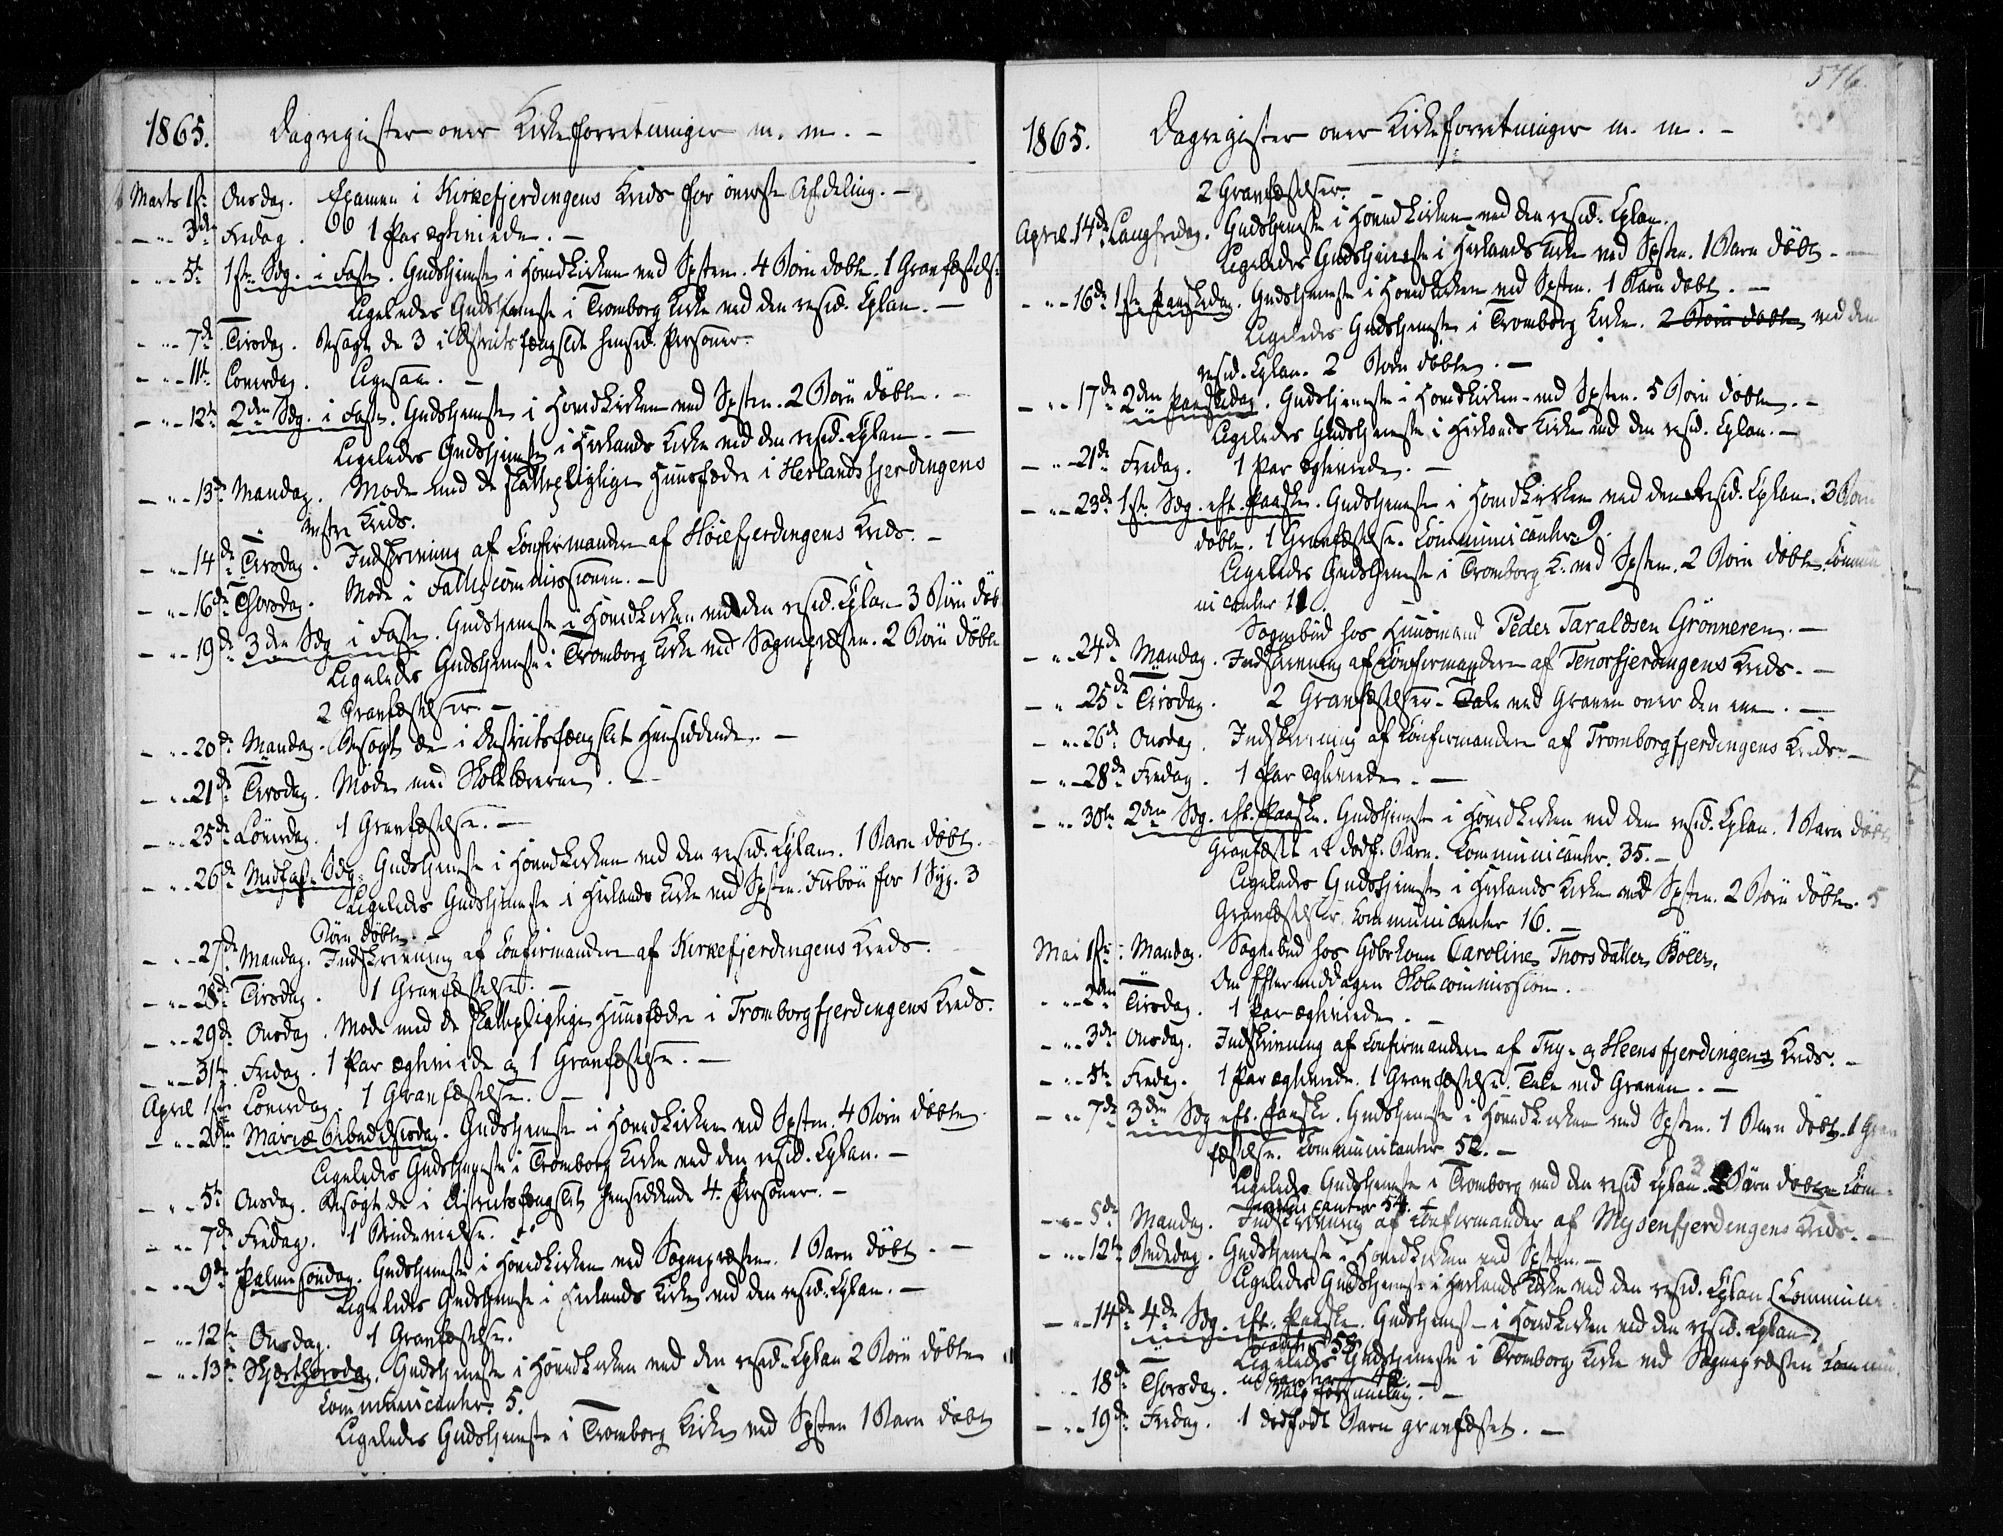 1865. Dagregister over Kirkeforretninger m. m. –
Marts 1ste Onsdag. Examen i Kirkefjerdingens Kreds for øverste Afdeling. –
– " – 3die Fredag. 1 Par ægteviede. –
– " – 5te 1ste Sdg. i Faste. Gudstjeneste i Hovedkirken ved Spsten. 4 Børn døbte. 1 Gravfæstels:
Ligeledes Gudstjeneste i Tromborg Kirke ved den resid. Cplan. –
– " – 7de Tirsdag. Besøgt de 3 i Distriktsfængslet hensid. Personer.
– " – 11te Løverdag. Ligesaa. –
– " – 12te 2den Sdg. i Faste. Gudstjeneste i Hovedkirken ved Spsten. 2 Børn døbte. –
Ligeledes Gudstjeneste i Herlands Kirke ved den resid. Cplan. –
– " – 13de Mandag. Møde med de skattepligtige Huusfædre i Herlandsfjerdingens
vestre Kreds.
– " – 14de Tirsdag. Indskrivning af Confirmander af Høiefjerdingens Kreds. –
– " – 16de Thorsdag. Møde i Fattigcommissionen. –
– " – 19de 3die Sdg i Faste. Gudstjeneste i Hovedkirken ved den resid. Cplan 3 Børn døb
Ligeledes Gudstjeneste i Tromborg Kirke ved Sognepræsten. 2 Børn døbte
2 Gravfæstelser. –
– " – 20de Mandag. Besøgt de i Distriktsfængslet Hensiddende. –
– " – 21de Tirsdag. Møde med Skolelærerne. –
– " – 25de Løverdag. 1 Gravfæstelse. –
– " – 26de Midfaste Sdg. Gudstjeneste i Hovedkirken ved den resid. Cplan. 1 Barn døbt.
Ligeledes Gudstjeneste i Herlands Kirke ved Spsten. Forbøn for 1 Syg. 3
Børn døbte. –
– " – 27de Mandag. Indskrivning af Confirmander af Kirkefjerdingens Kreds.
– " – 28de Tirsdag. 1 Gravfæstelse. –
– " – 29de Onsdag. Møde med de skattepligtige Huusfædre i Tromborgfjerdingens Kreds.
– " – 31te Fredag. 1 Par ægteviede og 1 Gravfæstelse. –
April 1ste Løverdag. 1 Gravfæstelse. –
– " – 2den Mariæ Bebudelsesdag. Gudstjeneste i Hovedkirken ved Spsten. 4 Børn døbte.
Ligeledes Gudstjeneste i Tromborg Kirke ved den resid. Cplan. –
– " – 5te Onsdag. Besøgt de i Distriktsfængslet hensiddende 4 Personer. –
– " – 7de Fredag. 1 Brudevielse.
– " – 9de Palmesøndag. Gudstjeneste i Hovedkirken ved Sognepræsten. 1 Barn døbt. –
Ligeledes Gudstjeneste i Herlands Kirke ved den resid. Cplan. –
– " – 12te Onsdag. 1 Gravfæstelse.
– " – 13de Skjærthorsdag. Gudstjeneste i Hovedkirken ved den resid. Cplan 2 Børn døbte
Communicanter. 5.
Ligeledes Gudstjeneste i Tromborg Kirke ved Spsten 1 Barn døbt
546.
1865. Dagregister over Kirkeforretninger m. m. –
2 Gravfæstelser. –
April. 14de Langfredag. Gudstjeneste i Hovedkirken ved den resid. Cplan.
Ligeledes Gudstjeneste i Herlands Kirke ved Spsten. 1 Barn døbt. –
– " – 16de 1ste Paaskedag. Gudstjeneste i Hovedkirken ved Spsten. 1 Barn døbt. –
Ligeledes Gudstjeneste i Tromborg Kirke. 2 Børn døbte ved den
resid. Cplan. 2 Børn døbte. –
– " – 17de 2den Paaskedag. Gudstjeneste i Hovedkirken ved Spsten. 5 Børn døbte. –
Ligeledes Gudstjeneste i Herlands Kirke ved den resid. Cplan. –
– " – 21de Fredag. 1 Par ægteviede. –
– " – 23de 1ste Sdg. eft. Paaske. Gudstjeneste i Hovedkirken ved den resid. Cplan. 3 Børn
døbte. 1 Gravfæstelse. Communicanter 9.
Ligeledes Gudstjeneste i Tromborg K. ved Spsten. 2 Børn døbte. Commu
nicanter 11.
Sognebud hos Huusmand Peder Taraldsen Grönneren. –
– " – 24de Mandag. Indskrivning af Confirmander af Tenorfjerdingens Kreds. –
– " – 25de Tirsdag. 2 Gravfæstelser. Tale ved Graven over den ene. –
– " – 26de Onsdag. Indskrivning af Confirmander af Tromborgfjerdingens Kreds. –
– " – 28de Fredag. 1 Par ægteviede. –
– " – 30te 2den Sdg. eft. Paaske. Gudstjeneste i Hovedkirken ved den resid. Cplan. 1 Barn døbt
Gravfæstet et dødf. Barn. Communicanter. 35. –
Ligeledes Gudstjeneste i Herlands Kirke ved Spsten. 2 Børn døbte. 5
Gravfæstelser. Communicanter 16. –
Mai 1ste Mandag. Sognebud hos Gdbrkone Caroline Thorsdatter Böler.
Om Eftermiddagen Skolecommission.
– " – 2den Tirsdag. 1 Par ægteviede. –
– " – 3die Onsdag. Indskrivning af Confirmander af Trøg- og Heensfjerdingens Kreds. –
– " – 5te Fredag. 1 Par ægteviede. 1 Gravfæstelse. Tale ved Graven. –
– " – 7de 3die Sdg eft. Paaske. Gudstjeneste i Hovedkirken ved Spsten. 1 Barn døbt. 1 Grav
fæstelse. Communicanter 52. –
Ligeledes Gudstjeneste i Tromborg ved den resid Cplan. 3 Børn døbte Com
municanter 54.
– " – 5de Mandag. Indskrivning af Confirmander af Mysenfjerdingens Kreds. –
– " – 12te Bededag. Gudstjeneste i Hovedkirken ved Spsten. –
Ligeledes Gudstjeneste i Herlands Kirke ved den resid. Cplan (Communi
– " – 14de 4de Sdg. eft. Paaske. Gudstjeneste i Hovedkirken ved den resid. Cplan
canter 53
Ligeledes Gudstjeneste i Tromborg Kirke ved Sognepræsten Commu
nicanter
– " 18de Thorsdag. Valgforsamling. –
– " – 19de Fredag. 1 dødfødt Barn gravfæstet. –